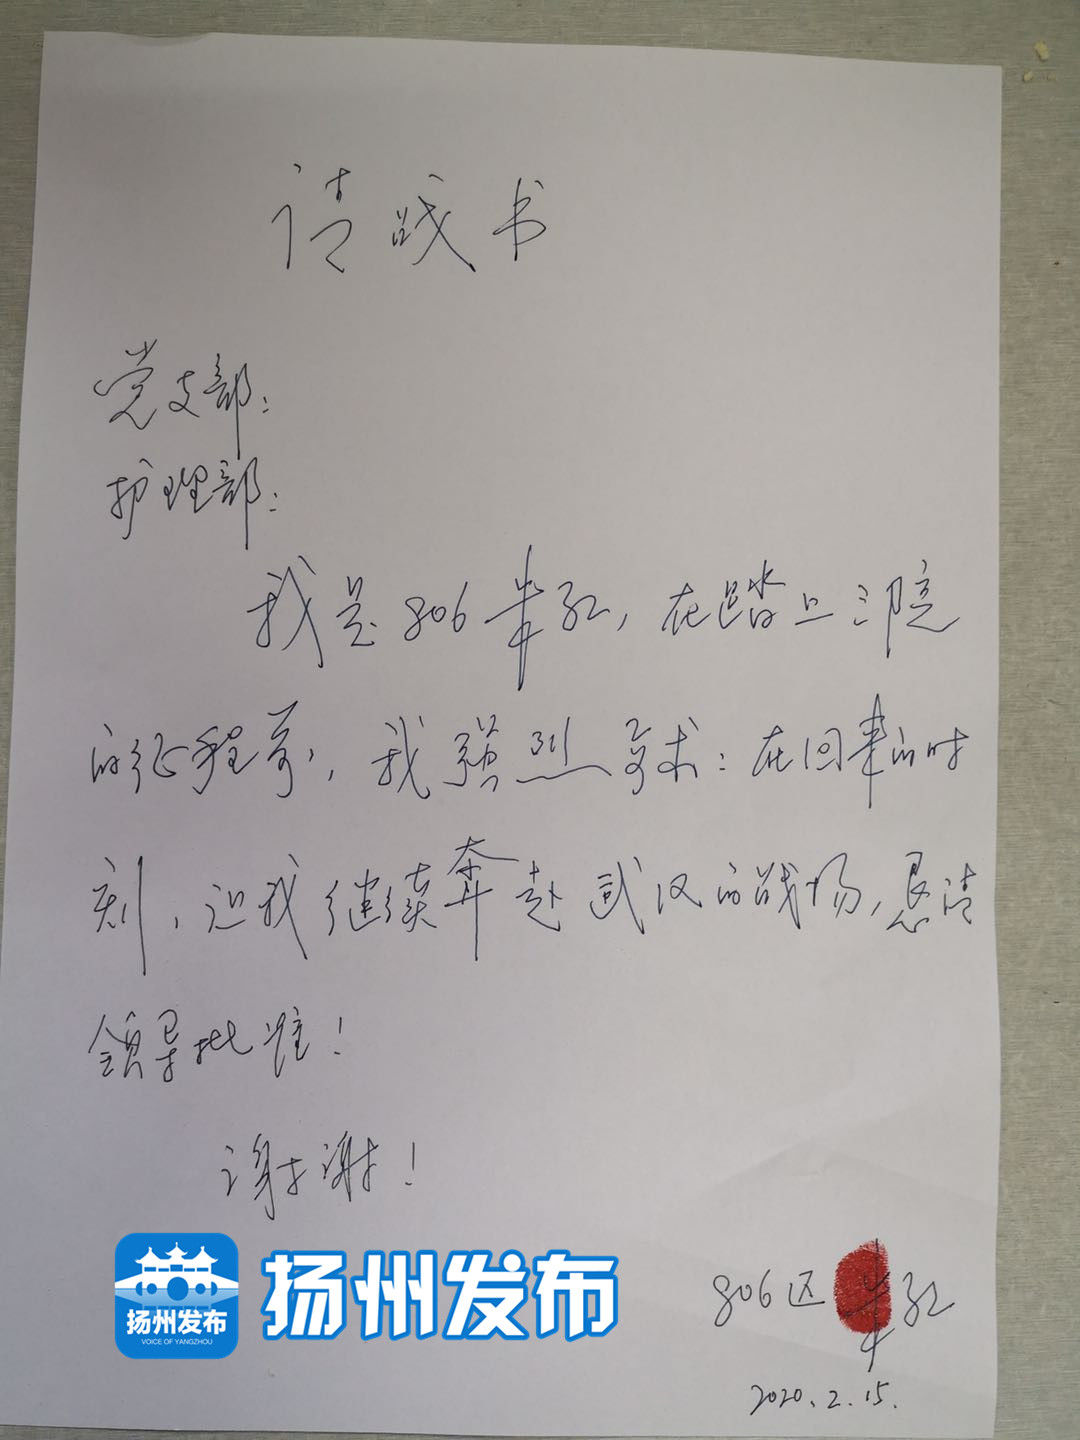 请战书
党支部：
护理部：
我是806 红，在踏上三院
的征程前，我强烈要求：在回来的时
刻，让我继续奔赴武汉的战场，恳请
领导批准！
谢谢！
806区 红
2020.2.15.
扬州发布
扬州发布
VOICE OF YANGZHOU